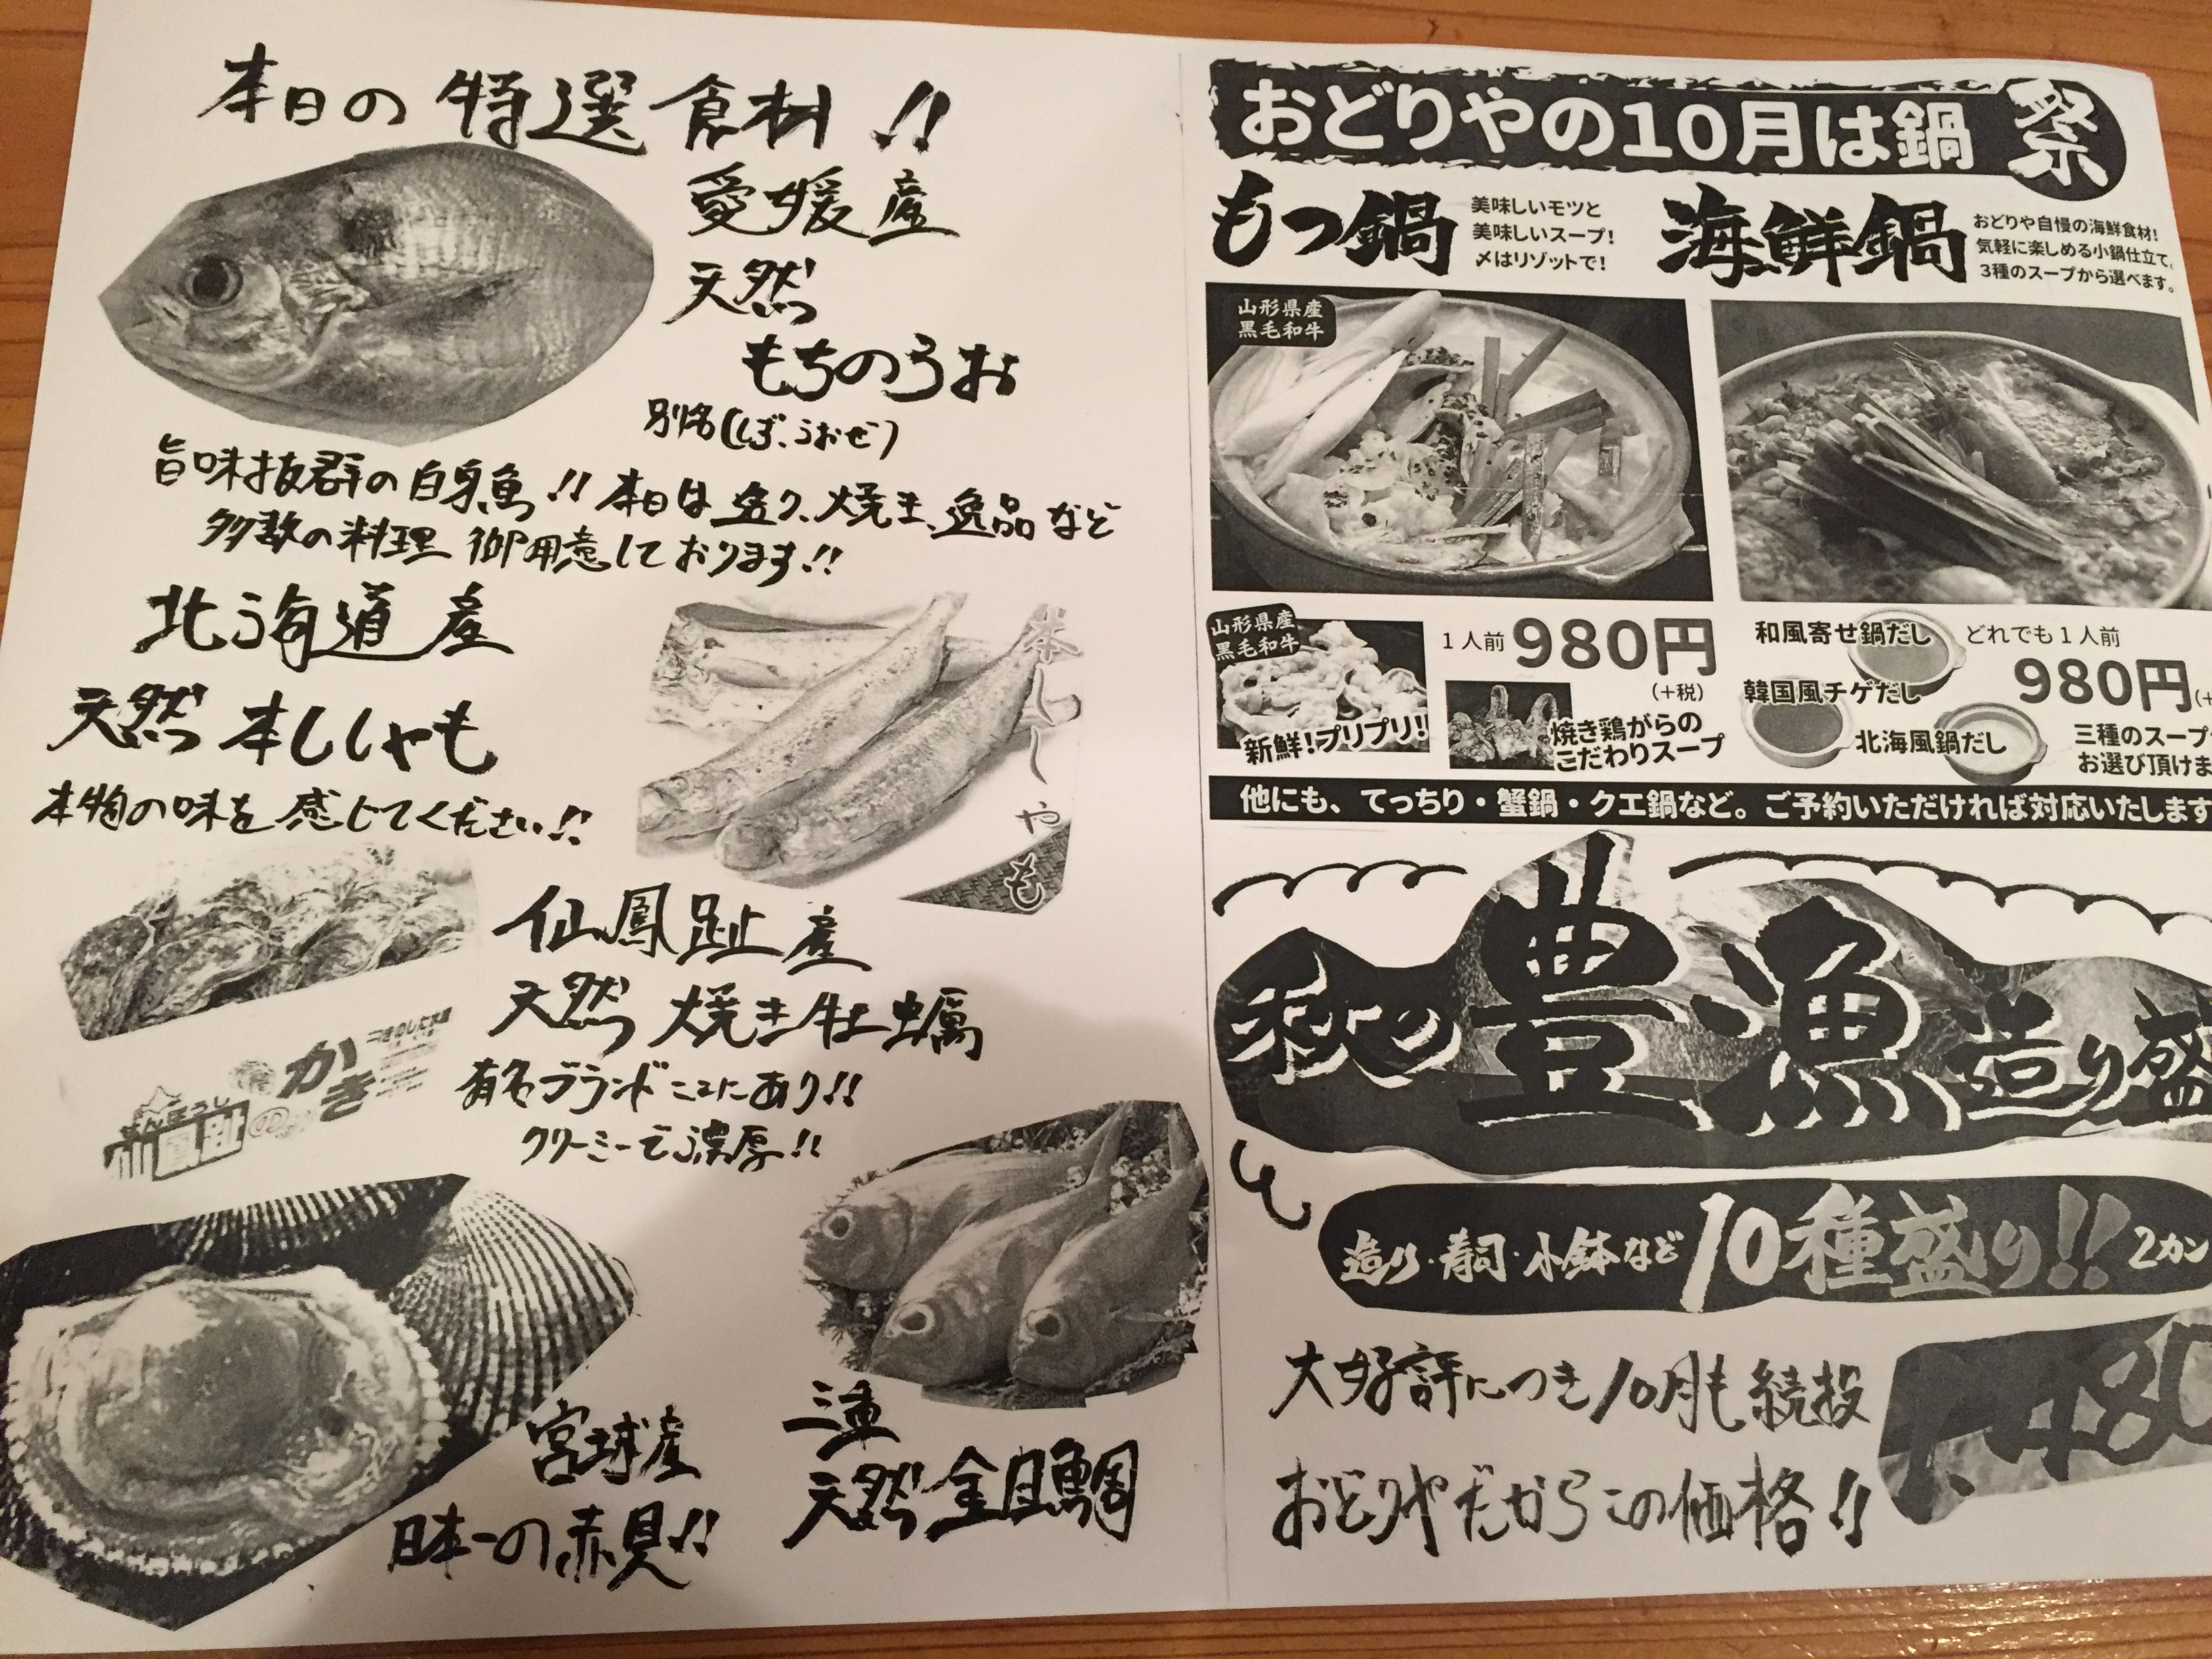 本日の特選食材!!
愛媛産
天然
もちのうお
別名(しず、うおぜ)
旨味抜群の白身魚!!本日は造り、焼き、逸品など
多数の料理御用意しております!!
北海道産
天然本ししゃも
本物の味を感じてください!!
本ししゃも
仙鳳趾産
天然焼き牡蠣
有名ブランドここにあり!!
クリーミーで濃厚!!
せんぽうし
仙鳳趾のかき
宮城産
日本一の赤貝!!
三重
天然金目鯛
おどりやの10月は鍋祭
もつ鍋
美味しいモツと
美味しいスープ!
〆はリゾットで!
海鮮鍋
おどりや自慢の海鮮食材!
気軽に楽しめる小鍋仕立て。
3種のスープから選べます。
山形県産
黒毛和牛
山形県産
黒毛和牛
新鮮!プリプリ!!
1人前980円
(+税)
焼き鶏がらの
こだわりスープ
和風寄せ鍋だし
韓国風チゲだし
北海風鍋だし
どれでも1人前
980円(+
三種のスープ
お選び頂けま
他にも、てっちり・蟹鍋・クエ鍋など。ご予約いただければ対応いたします
秋の豊漁造り盛
造り・寿司・小鉢など10種盛り!!2カン
大好評につき10月も続投
おどりやだからこの価格!!
1,480